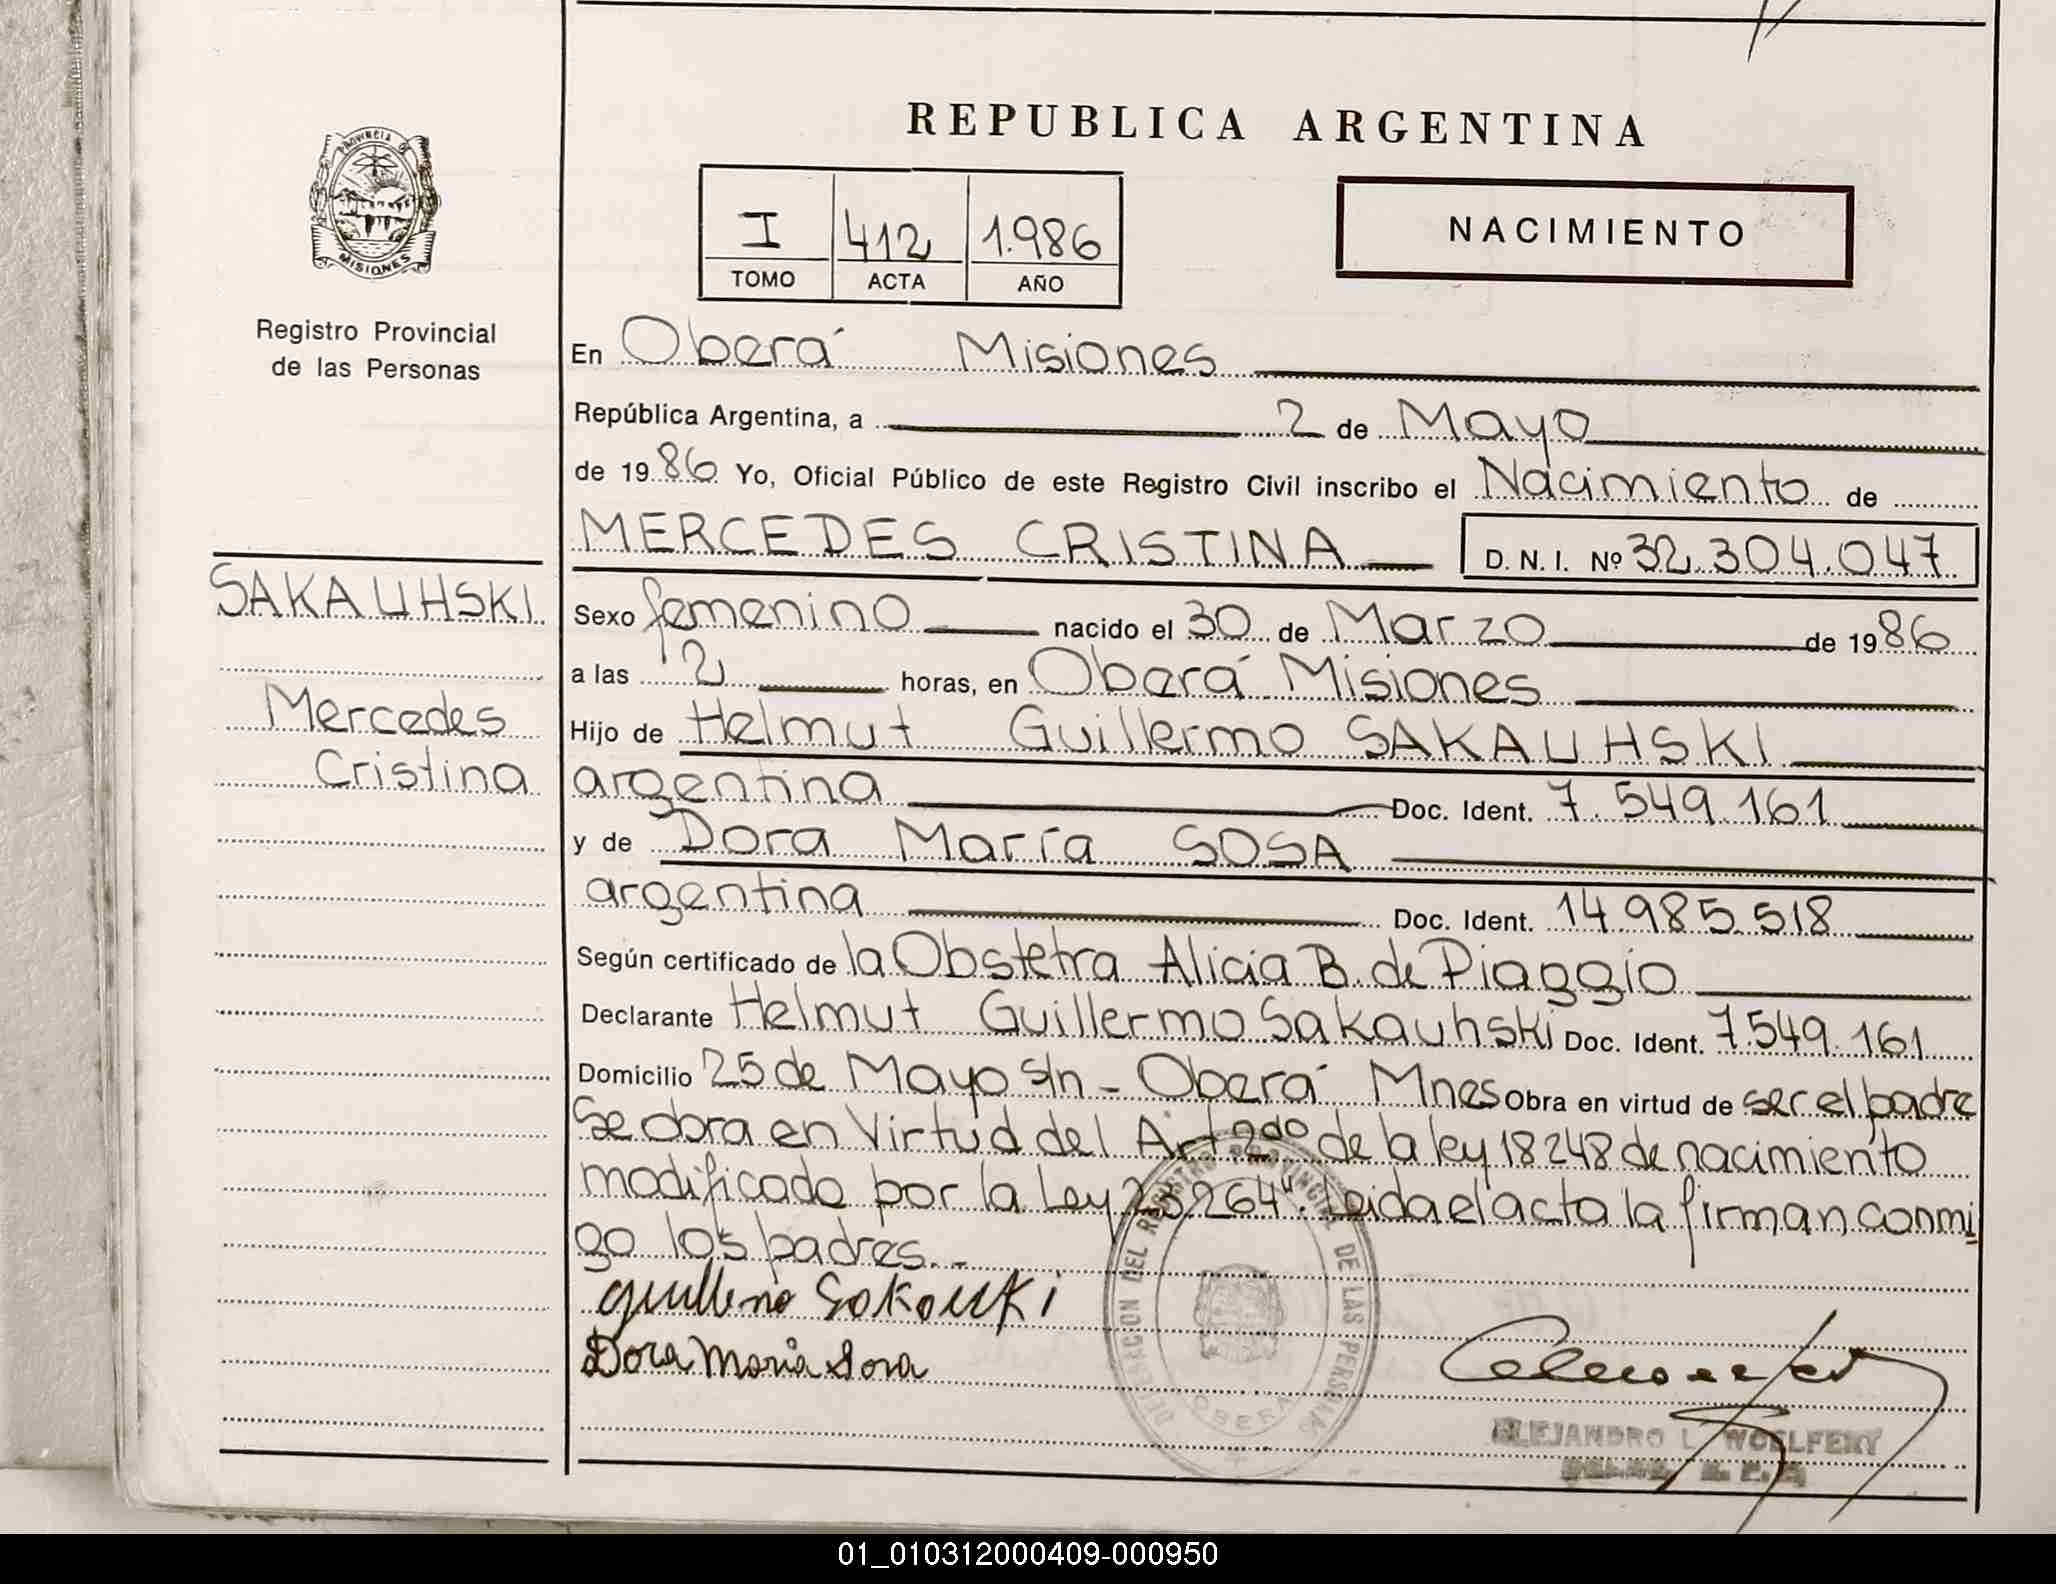 REPUBLICA ARGENTINA
PROVINCIA DE
MISIONES
Registro Provincial
de las Personas
I 412 1.986
TOMO ACTA AÑO
NACIMIENTO
En Oberá Misiones
República Argentina, a 2 de Mayo
de 1986 Yo, Oficial Público de este Registro Civil inscribo el Nacimiento de
MERCEDES CRISTINA D. N. I. Nº 32.304.047
SAKAUHSKI
Mercedes
Cristina
Sexo femenino nacido el 30 de Marzo de 1986
a las 2 horas, en Oberá Misiones
Hijo de Helmut Guillermo SAKAUHSKI
argentina Doc. Ident. 7.549.161
y de Dora María SOSA
argentina Doc. Ident. 14.985.518
Según certificado de la Obstetra Alicia B. de Piaggio
Declarante Helmut Guillermo Sakauhski Doc. Ident. 7.549.161
Domicilio 25 de Mayo s/n - Oberá Mnes Obra en virtud de ser el padre
Se obra en Virtud del Art 2do de la ley 18248 de nacimiento
modificado por la Ley 23.264". Leida el acta la firman conmi
go los padres. -
Guillermo
Dora Maria Sosa
DELEGACION DEL REGISTRO PROVINCIAL DE LAS PERSONAS
OBERA
ALEJANDRO L. WOELFERT
01_010312000409-000950